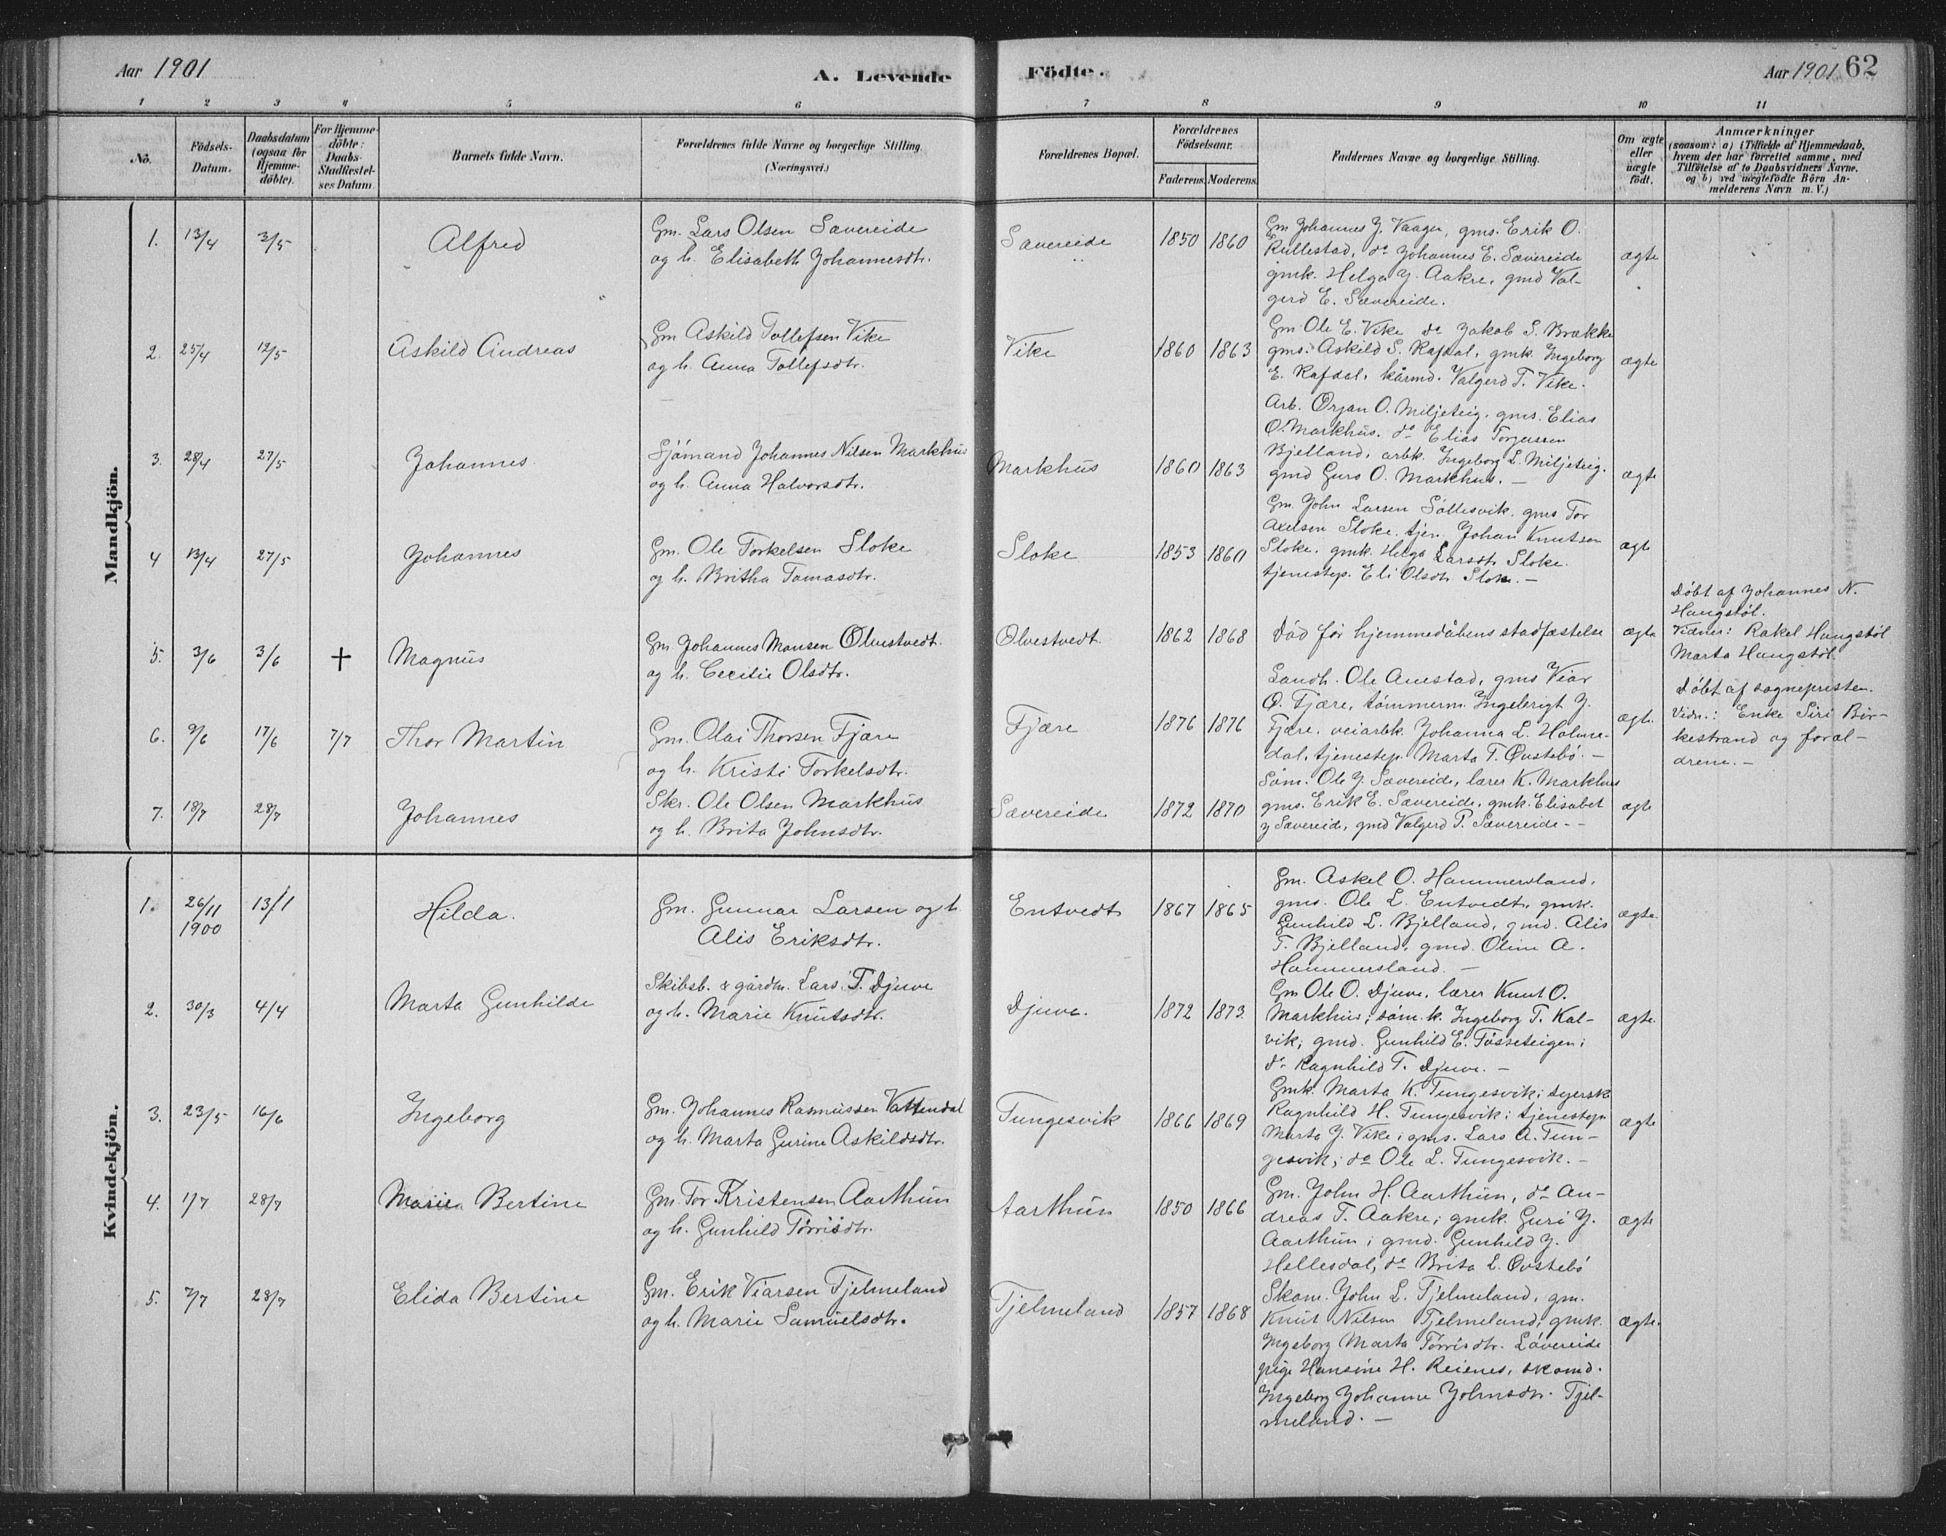 Aar 1901
A. Levende Födte.
Aar 1901 62
1 2 3 4 5 6 7 8 9 10 11
No.
Födsels-
Datum.
Daabsdatum
(ogsaa for
Hjemme-
döbte).
For Hjemme-
döbte:
Daabs-
Stadfæstel-
ses Datum.
Barnets fulde Navn.
Forældrenes fulde Navne og borgerlige Stilling.
(Næringsvei.)
Forældrenes Bopæl.
Forældrenes
Födselsaar.
Faderens. Moderens.
Faddernes Navne og borgerlige Stilling.
Om ægte
eller
uægte
födt.
Anmærkninger
(saasom: a) i Tilfælde af Hjemmedaab,
hvem der har forrettet samme, med
Tilföielse af to Daabsvidners Navne.
og b) ved uægtefödte Börn An-
melderens Navn m. V.)
Mandkjön.
1. 13/4 3/5 Alfred
Gm. Lars Olsen Sævereide
og h. Elisabeth Johannesdtr.
Sævereide 1850 1860
Gm Johannes J. Vaagen, gms. Erik O.
Rullestad, do Johannes E. Sævereide
gmk. Helga J. Aakre, gmd Val-
gerd E. Sævereide.
ægte
2. 25/4 12/5 Askild Andreas
Gm Askild Tollefsen Vike
og h. Anna Tollefsdtr.
Vike 1860 1863
Gm Ole E. Vike do Jakob S. Brække
gms. Askild S. Rafdal, gmk. Ingeborg
E. Rafdal, kårmd. Valgerd T. Vike.
ægte
3. 28/4 27/5 Johannes
Sjömand Johannes Nilsen Markhus
og h. Anna Halvorsdtr.
Markhus 1860 1863
Arb. Ørjan O. Miljeteig, gms. Elias
O. Markhus. do Elias Torgussen
Bjelland, arbk. Ingeborg L. Miljeteig.
gmd Guro O. Markhus. —
ægte
4 13/4 27/5 Johannes
Gm. Ole Torkelsen Sloke
og h. Britha Tomasdtr.
Sloke 1853 1860
Gm. John Larsen Söllesvik, gms Tor
Axelsen Sloke, tjen. Johan Knutsen
Sloke. gmk. Helga Larsdtr Sloke.
tjenestep. Eli Olsdtr Sloke. —
ægte
5. 3/6 3/6 † Magnus
Gm. Johannes Monsen Ølvestvedt.
og h. Cecilie Olsdtr.
Ølvestvedt. 1862 1868
Död før hjemmedåbens stadfæstelse
ægte
Døbt af Johannes N.
Haugstøl.
Vidner: Rakel Haugstøl
Marta Haugstøl
6. 9/6 17/6 7/7 Thor Martin
Gm. Olai Thorsen Fjære
og h. Kristi Torkelsdtr.
Fjære 1876 1876
Landh. Ole Amestad, gms Viar
O. Fjære, tömmerm. Ingebrigt J.
Fjære, veiarbk. Johanna L. Holme-
dal, tjenestep. Marta T. Øvstebö. —
ægte.
Døbt af sognepresten.
Vidn.: Enke Siri Bir-
kestrand og foræl-
drene. —
7. 18/7 28/7 Johannes
Skr. Ole Olsen Markhus
og h. Brita Johnsdtr.
Sævereide 1872 1870
Söm. Ole J. Sævereide, lærer K. Markhus
gms. Erik E. Sævereide, gmk. Elisabet
J Sævereide, gmd Valgerd P. Sævereide. -
ægte
Kvindekjön.
1. 26/11 1900 13/1 Hilda.
Gm. Gunnar Larsen og h.
Alis Eriksdtr.
Entvedt 1867 1865
Gm. Askel O. Hammersland,
gms. Ole L. Entvedt, gmk.
Gunhild L. Bjelland, gmd. Alis
T. Bjelland, gmd. Oline A.
Hammersland. —
ægte.
2. 30/3 4/4 Marta Gunhilde
Skibsb. & gårdm. Lars T. Djuve
og h. Marie Knutsdtr.
Djuve. 1872 1873.
Gm Ole O. Djuve, lærer Knut O.
Markhus; söm.k. Ingeborg T. Kal-
vik; gmd. Gunhild E. Fosseteigen;
do Ragnhild T. Djuve. —
ægte.
3. 23/5 16/6 Ingeborg
Gm. Johannes Rasmussen Vattendal
og h. Marta Gurine Askildsdtr.
Tungesvik 1866 1869
Gmk. Marta K. Tungesvik; syersk
Ragnhild H. Tungesvik; tjenestep
Marta J. Vike; gms. Lars A. Tun-
gesvik; do Ole L. Tungesvik. —
ægte
4. 1/7 28/7 Bertine
Gm Tor Kristensen Aarthun
og h. Gunhild Törrisdtr.
Aarthun 1850 1866
Gm. John H. Aarthun, do An-
dreas T. Aakre; gmk. Guri J.
Aarthun; gmd. Gunhild J.
Hellesdal; do Brita L. Øvstebö
ægte
5. 7/7 28/7 Elida Bertine
Gm. Erik Viarsen Tjelmeland
og h. Marie Samuelsdtr.
Tjelmeland 1857 1868
Skom. John L. Tjelmeland, gm.
Knut Nilsen Tjelmeland, gmk.
Ingeborg Marta Törrisdtr. Lövereide
pige Hansine H. Reienes, skomd.
Ingeborg Johanne Johnsdtr. Tjel-
meland. —
ægte.